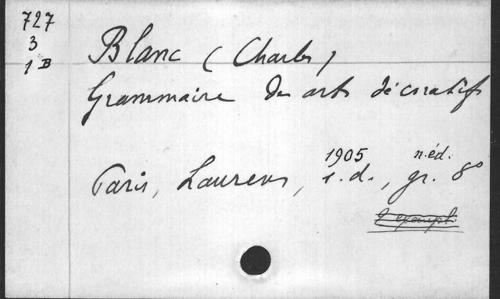 727
3
1 B
Blanc (Charles)
Grammaire des arts décoratifs
1905 n. éd.
Paris, Laurens, s. d., gr. 8°
2 exempl.